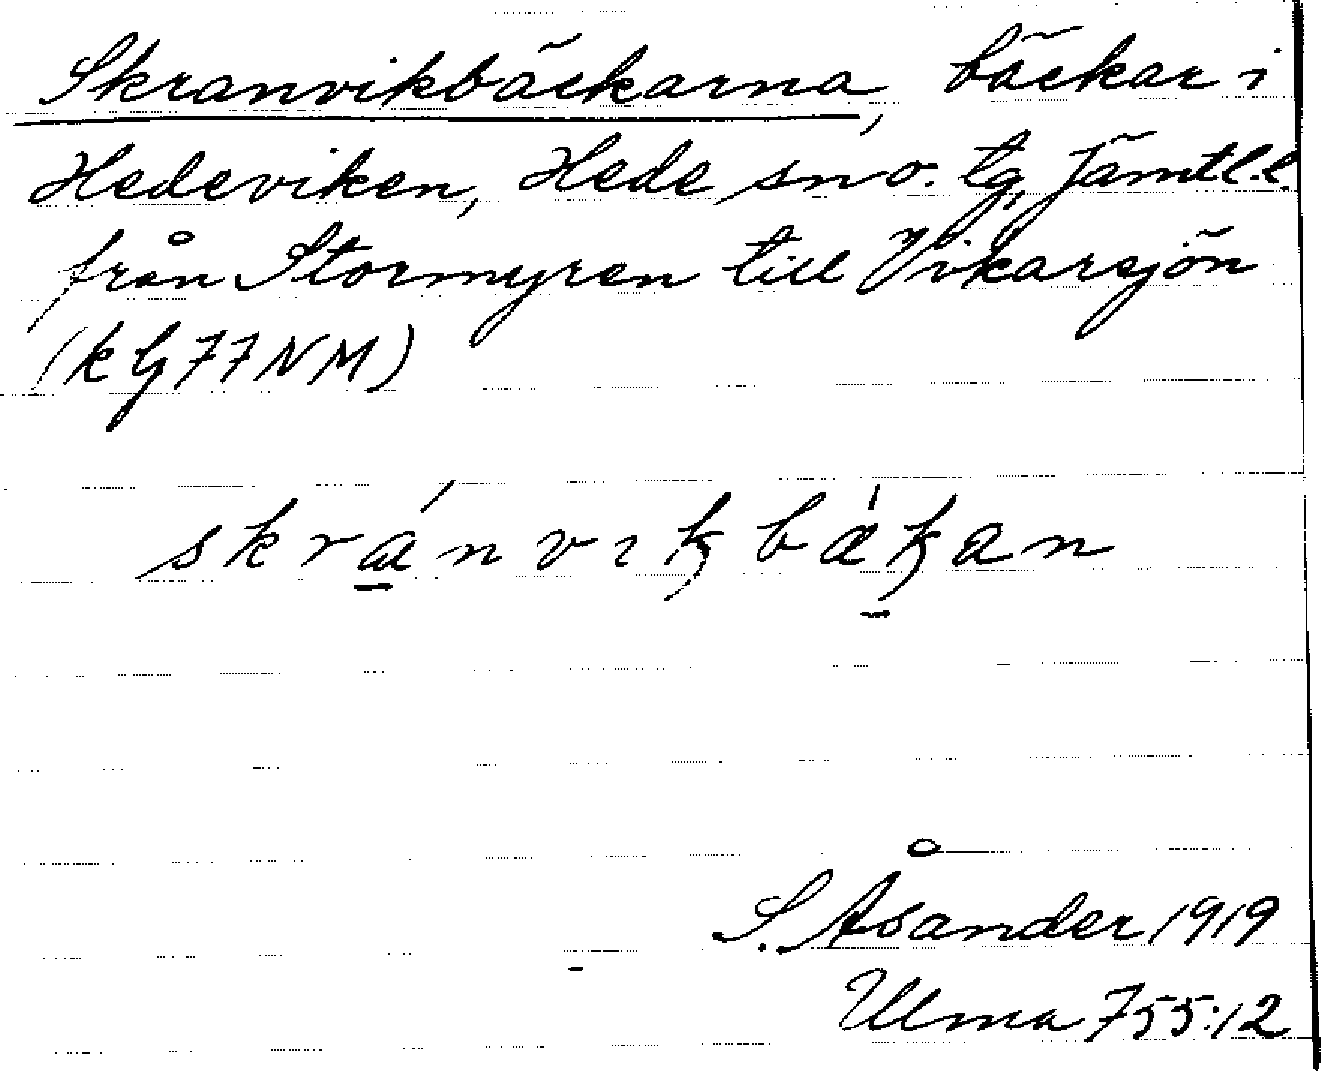 Skranvikbäckarna, bäckar i
Hedeviken, Hede sn o. tg, Jämtl. l.
från Stormyren till Vikarsjön
(k G 77 NM)
skránvikbäkan
S. Åsander 1919
Ulma 755:12